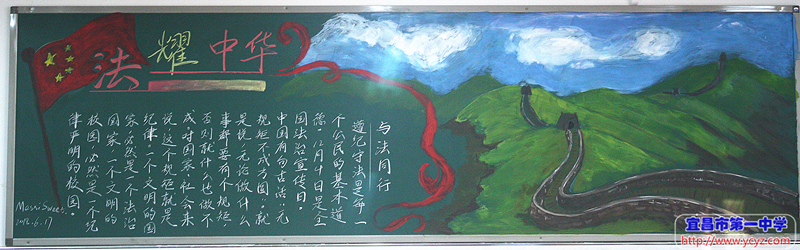 法耀中华
与法同行
遵纪守法是每一
个公民的基本道
德。12月4日是全
国法治宣传日。
中国有句古话:无
规矩不成方圆。就
是说,无论做什么
事都要有个规矩
否则就什么也做不
成,对国家、社会来
说,这个规矩就是
纪律。一个文明的国
家,必然是一个法治
国家,一个文明的
校园,必然是一个纪
律严明的校园。
宜昌市第一中学
http://www.ycyz.com